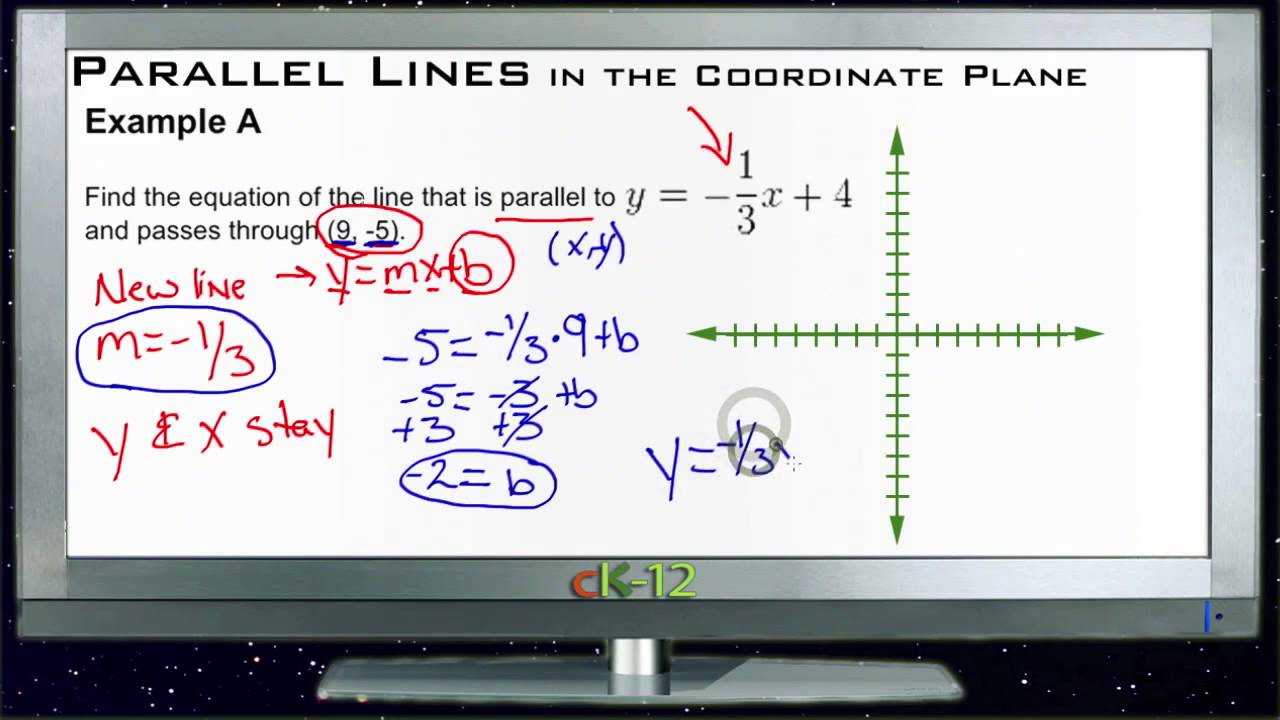 PARALLEL LINES IN THE COORDINATE PLANE
Example A
Find the equation of the line that is parallel to y = -1/3x + 4
and passes through (9, -5).
(x,y)
New line → y=mx+b
m=-1/3
-5=-1/3•9+b
-5=-3+b
+3 +3
y & x stay
-2=b
y=-1/3x
cK-12